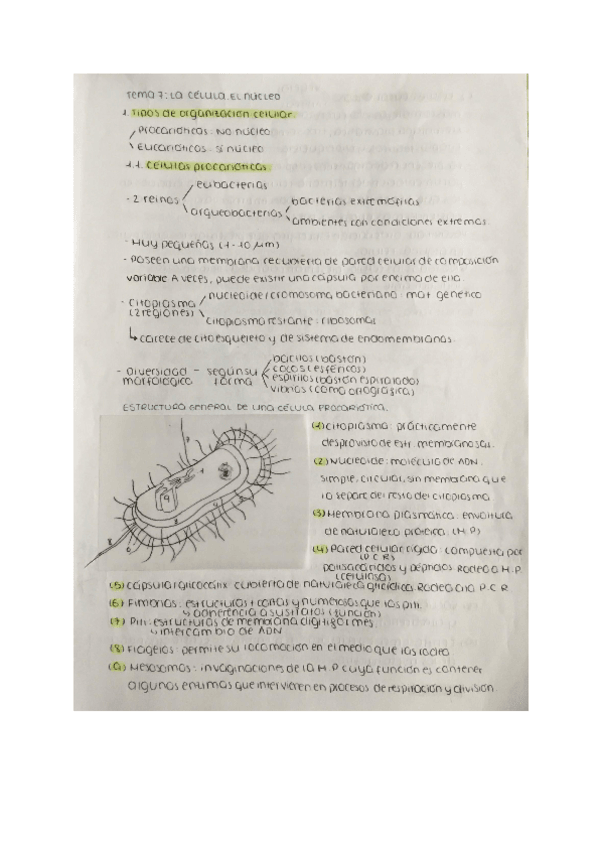 TEMA 7: LA CÉLULA EL NÚCLEO
1. Tipos de organización celular.
Procarióticas: No núcleo
Eucarióticas: Sí núcleo
1.1. Células procarióticas.
- 2 reinos
eubacterias
arqueobacterias
bacterias extremófilas
ambientes con condiciones extremas.
- Muy pequeñas (1-10 μm)
- Poseen una membrana recubierta de pared celular de composición
variable. A veces, puede existir una cápsula por encima de ella.
- Citoplasma
(2 regiones)
nucleoide/cromosoma bacteriano: mat genético
citoplasma restante: ribosomas
carece de citoesqueleto y de sistema de endomembranas.
- Diversidad morfológica - según su forma
bacilos (bastón)
cocos (esféricos)
espirilos (bastón espiralado)
vibrios (coma ortográfica)
ESTRUCTURA GENERAL DE UNA CÉLULA PROCARIÓTICA.
(1) Citoplasma: prácticamente
desprovisto de estr. membranosas.
(2) Nucleoide: molécula de ADN
simple, circular, sin membrana que
lo separe del resto del citoplasma
(3) Membrana plasmática: envoltura
de naturaleza proteica (M.P)
(4) Pared celular rígida: compuesta por
(P.C.R)
polisacáridos y péptidos. Rodea a M.P.
(celulosa)
(5) Cápsula/glicocálix: cubierta de naturaleza glicídica. Rodea a la P.C.R
(6) Fimbrias: estructuras + cortas y numerosas que los pili.
adherencia a sustratos (función)
(7) Pili: estructuras de membrana digitiformes.
intercambio de ADN
(8) Flagelos: permite su locomoción en el medio que los rodea
(9) Mesosomas: invaginaciones de la M.P cuya función es contener
algunas enzimas que intervienen en procesos de respiración y división.